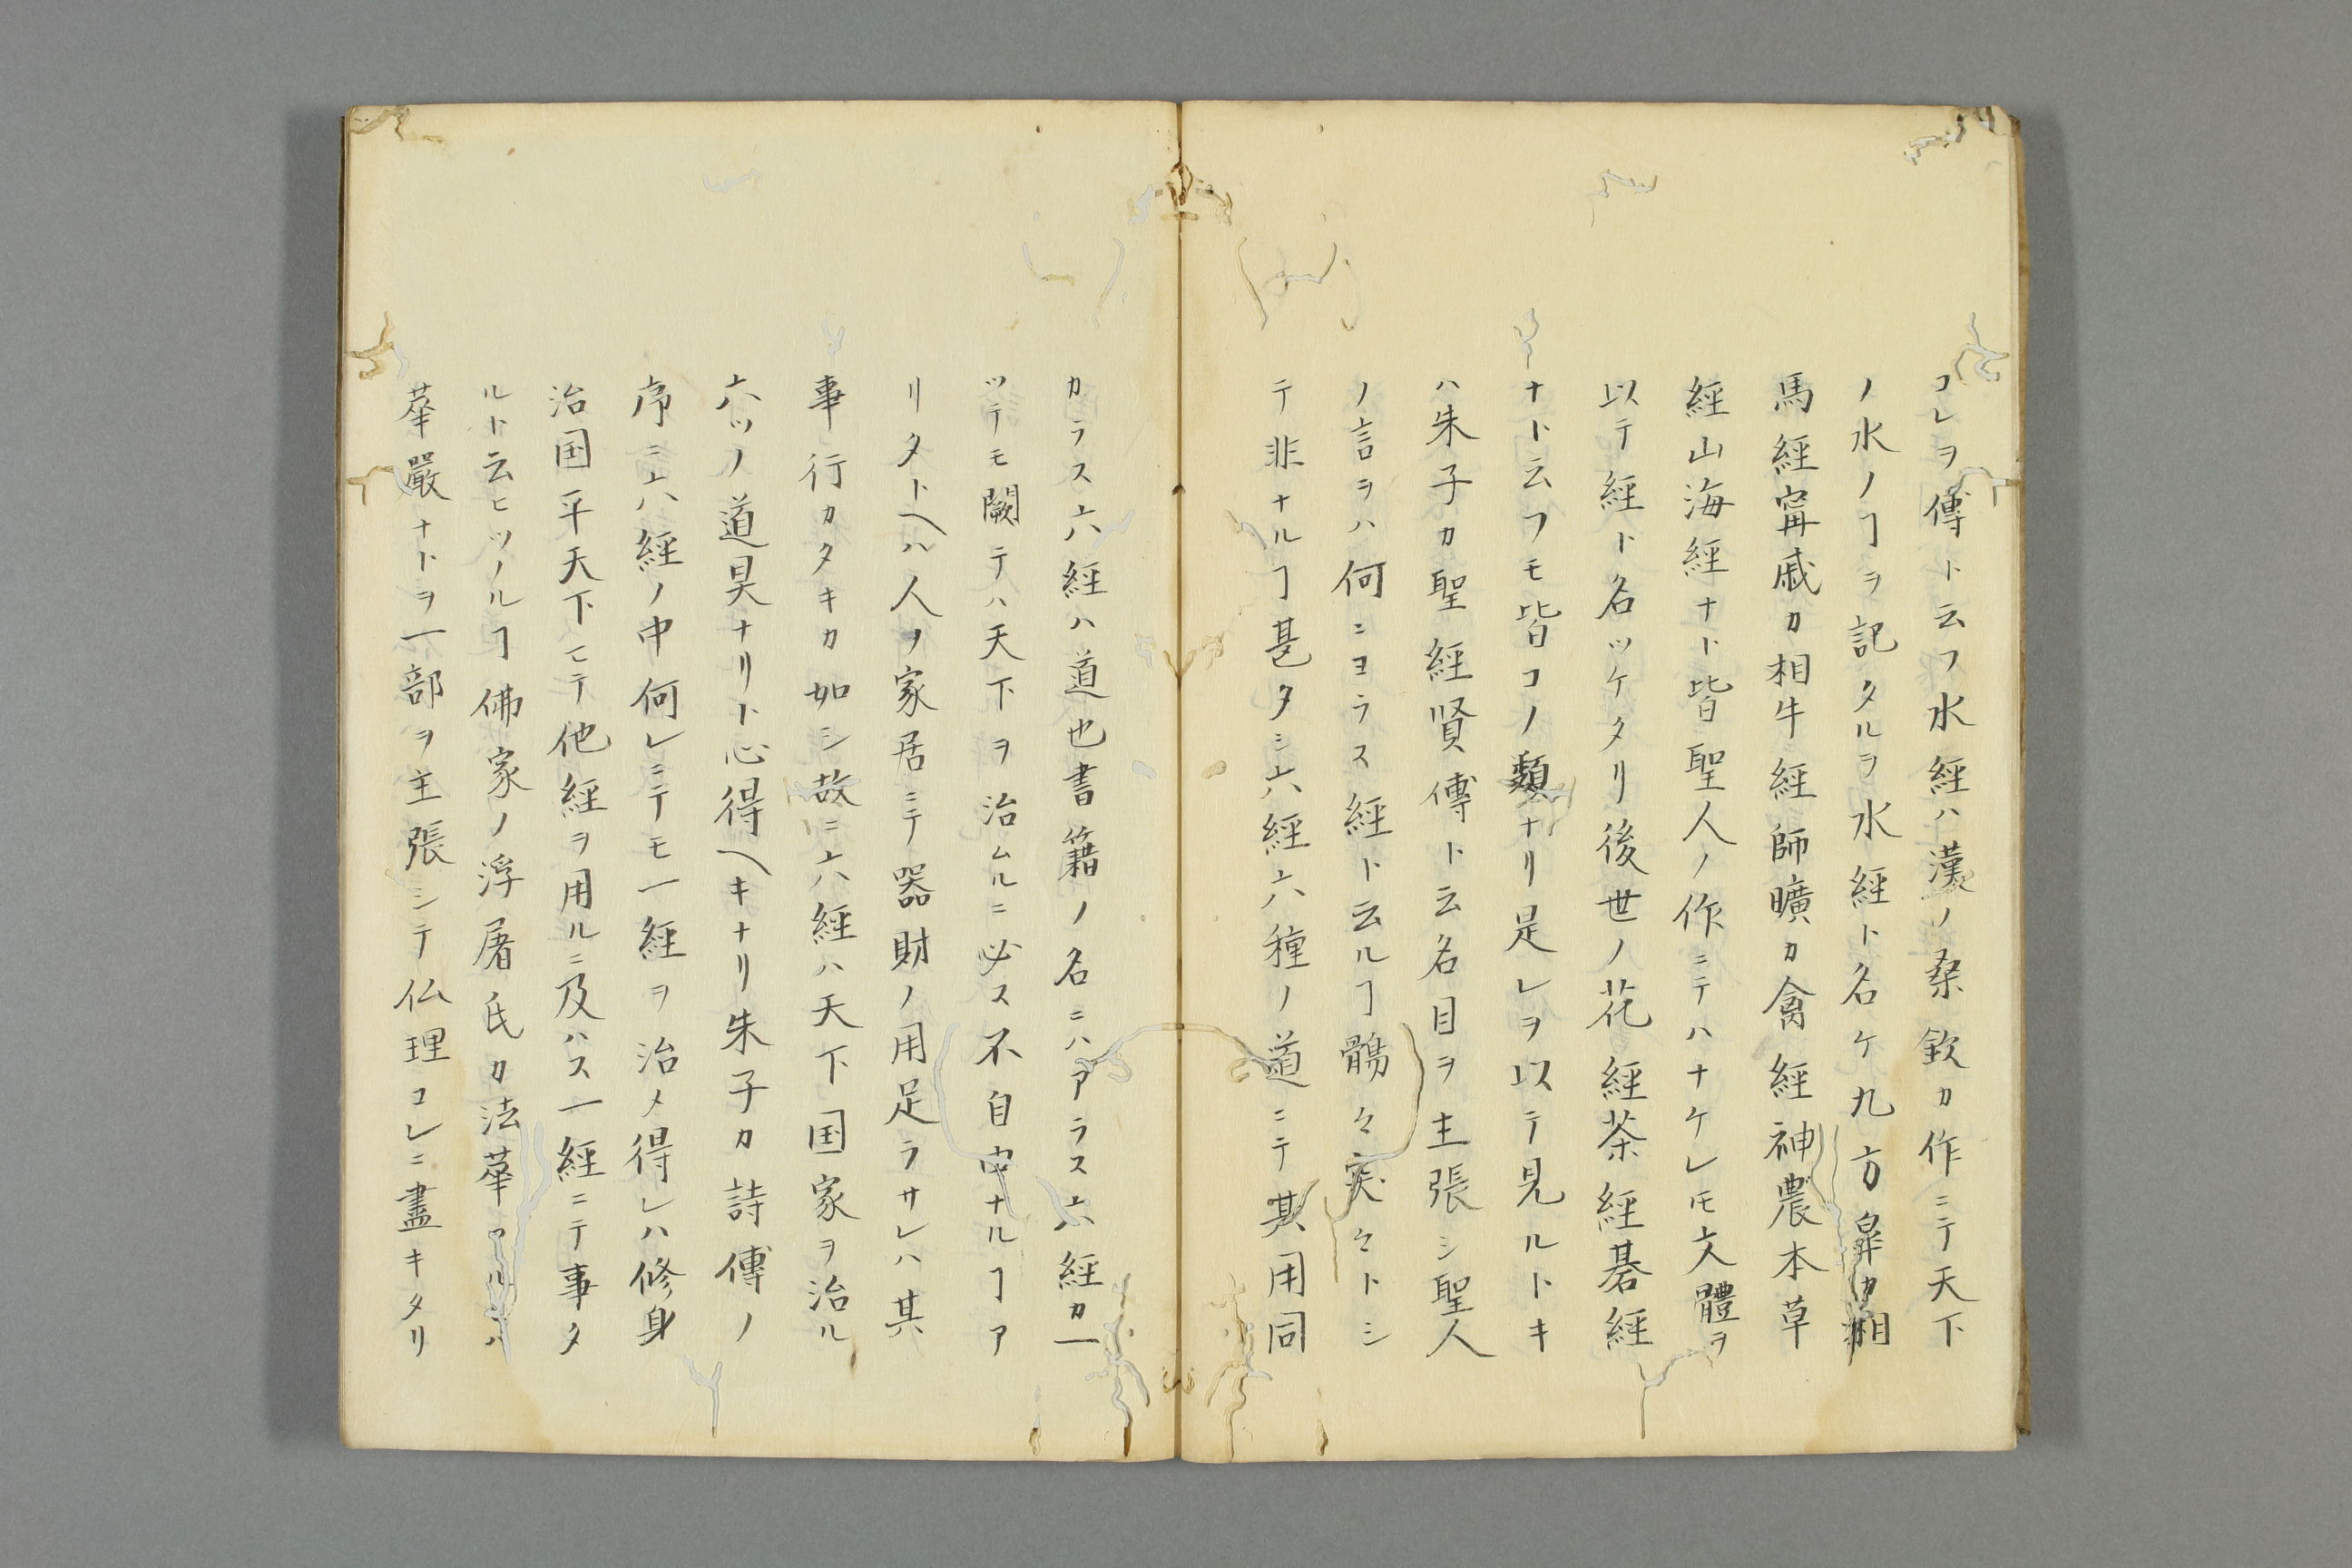 コレヲ傳ト云フ水經ハ漢ノ桑欽カ作ニテ天下
ノ水ノヿヲ記タルヲ水經ト名ケ九方皐カ相
馬經寗戚カ相牛經師曠カ禽經神農本草
經山海經ナト皆聖人ノ作ニテハナケレ𪜈文體ヲ
以テ經ト名ツケタリ後世ノ花經茶經碁經
ナト云フモ皆コノ類ナリ是レヲ以テ見ルトキ
ハ朱子カ聖經賢傳ト云名目ヲ主張シ聖人
ノ言ヲハ何ニヨラス經ト云ルヿ鶻々突々トシ
テ非ナルヿ甚タシ六經六種ノ道ニテ其用同
カラス六經ハ道也書籍ノ名ニハアラス六經カ一
ツテモ闕テハ天下ヲ治ムルニ必ス不自由ナルヿア
リタトヘハ人ノ家居ニテ器財ノ用足ラサレハ其
事行カタキカ如シ故ニ六經ハ天下国家ヲ治ル
六ツノ道具ナリト心得ヘキナリ朱子カ詩傳ノ
序ニ六經ノ中何レニテモ一經ヲ治メ得レハ修身
治国平天下ニテ他經ヲ用ルニ及ハス一經ニテ事タ
ルト云ヒツルヿ佛家ノ浮屠氏カ法華アルハ
華嚴ナトヲ一部ヲ主張シテ仏理コレニ盡キタリ